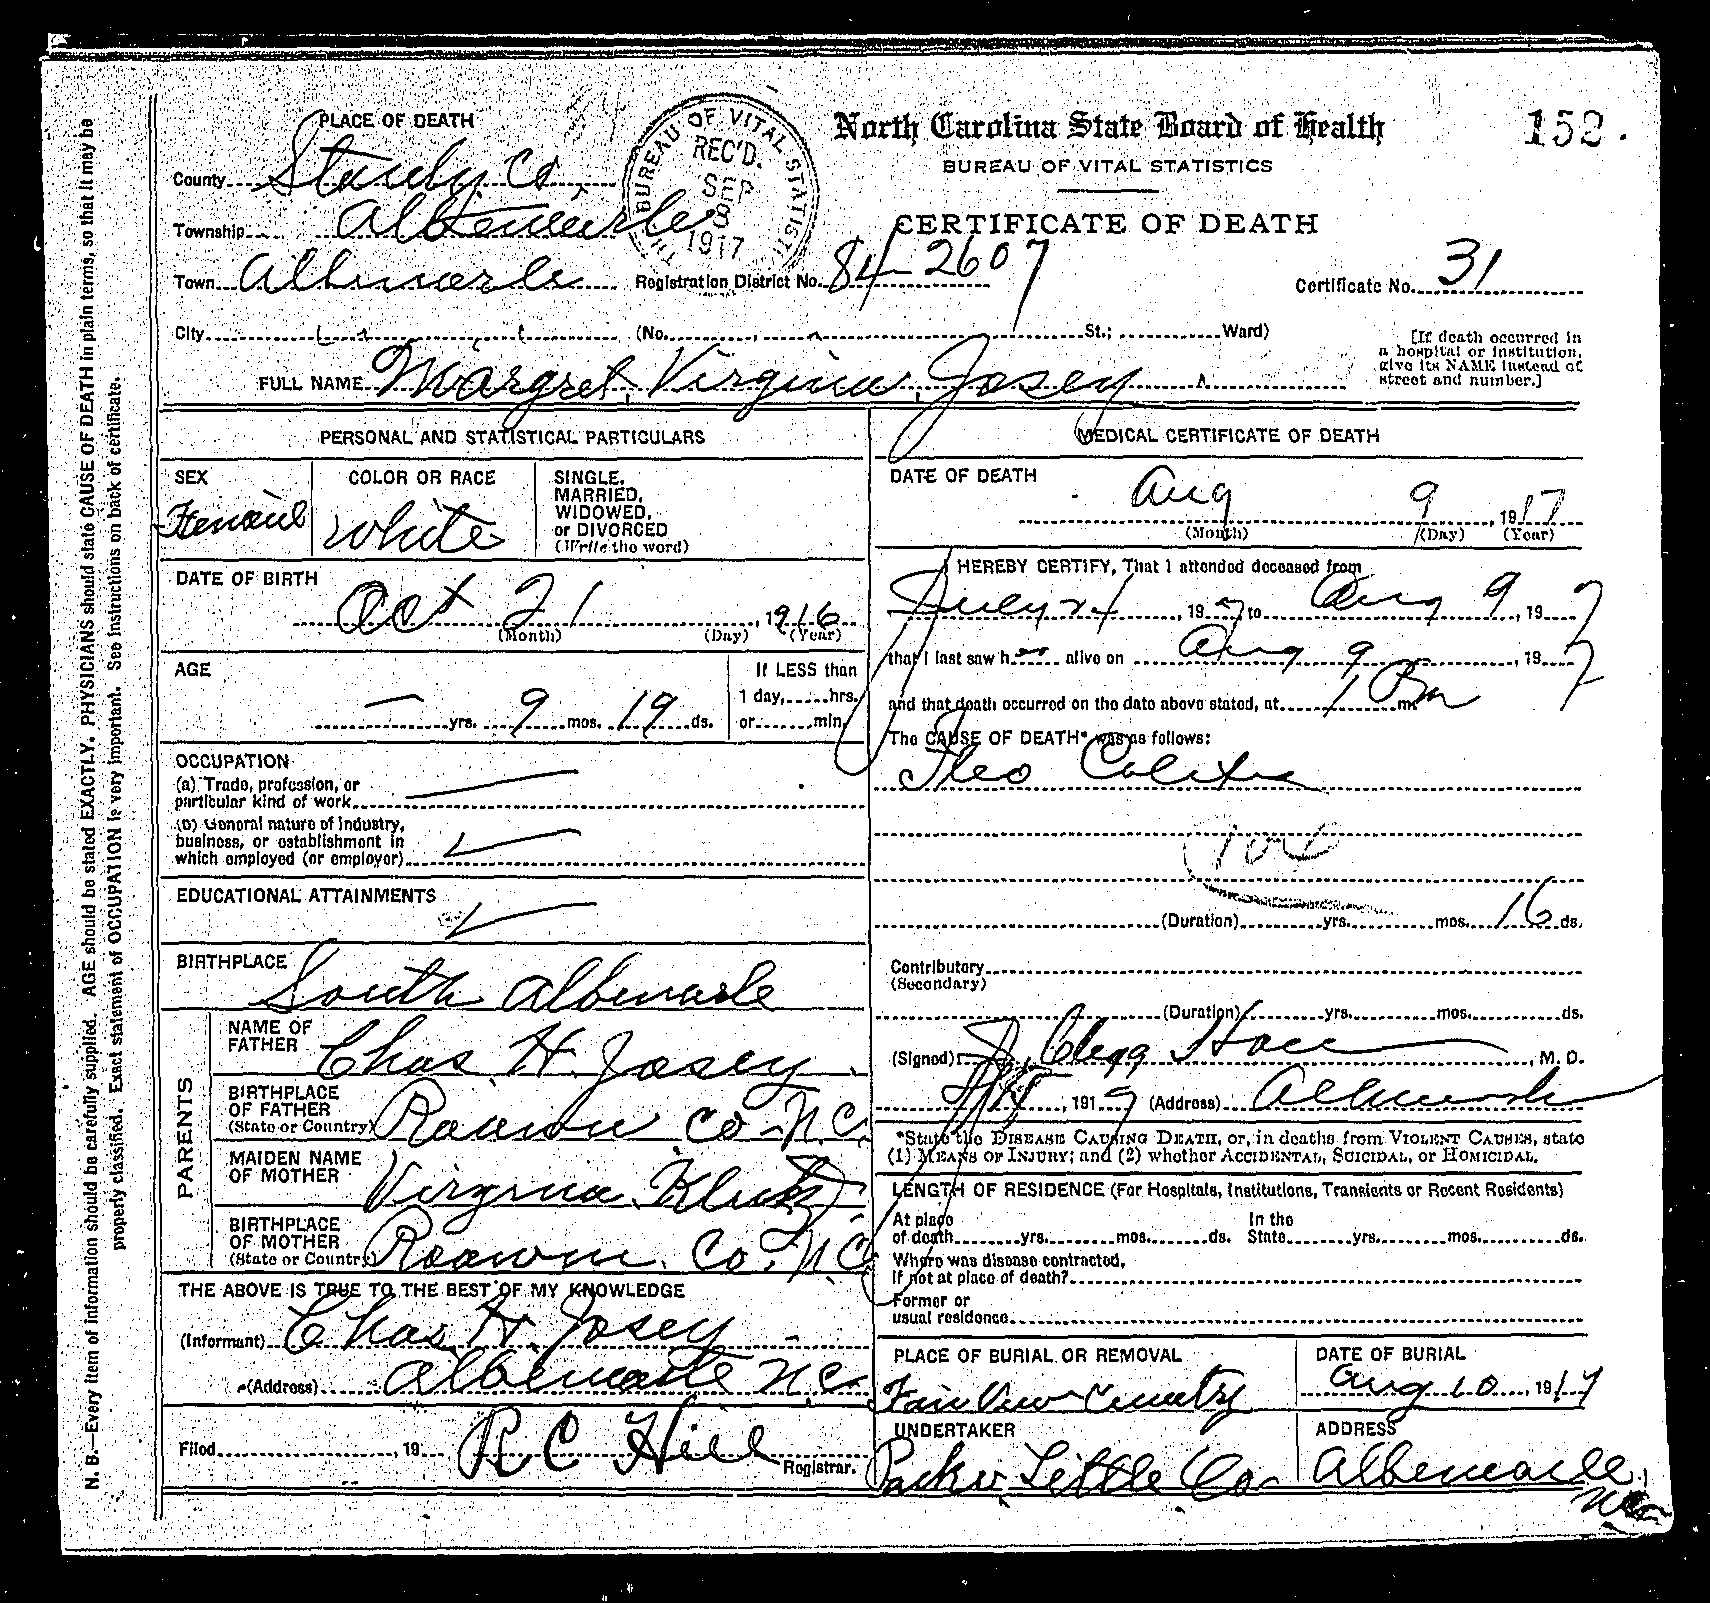 152.
North Carolina State Board of Health
BUREAU OF VITAL STATISTICS
CERTIFICATE OF DEATH
BUREAU OF VITAL STATISTI
REC'D.
SEP
8
1917
PLACE OF DEATH
County Stanly Co,
Township Albemarle
Town Albemarle Registration District No. 84-2607 Certificate No. 31
City (No. St.; Ward)
[If death occurred in
a hospital or institution,
give its NAME instead of
street and number.]
FULL NAME Margret Virginia Josey
PERSONAL AND STATISTICAL PARTICULARS
SEX
Female
COLOR OR RACE
White
SINGLE,
MARRIED,
WIDOWED,
or DIVORCED
(Write the word)
DATE OF BIRTH
Oct 21, 1916
(Month) (Day) (Year)
AGE
— yrs. 9 mos. 19 ds.
If LESS than
1 day, hrs.
or min.
OCCUPATION
(a) Trade, profession, or
particular kind of work
(b) General nature of industry,
business, or establishment in
which employed (or employer)
EDUCATIONAL ATTAINMENTS
BIRTHPLACE
South Albemarle
PARENTS
NAME OF
FATHER Chas. H. Josey
BIRTHPLACE
OF FATHER
(State or Country) Roawn Co-N.C.
MAIDEN NAME
OF MOTHER Virginia Klutz
BIRTHPLACE
OF MOTHER
(State or Country) Roawn Co. N.C.
THE ABOVE IS TRUE TO THE BEST OF MY KNOWLEDGE
(Informant) Chas. H. Josey
(Address) Albemarle N.C.
Filed , 19 R C Hill
Registrar.
MEDICAL CERTIFICATE OF DEATH
DATE OF DEATH
Aug 9, 1917
(Month) (Day) (Year)
I HEREBY CERTIFY, That I attended deceased from
July 24, 197 to Aug 9, 197
that I last saw h alive on Aug 9, 197
and that death occurred on the date above stated, at 1 Pm m.
The CAUSE OF DEATH* was as follows:
Ileo Colitis
104
(Duration) yrs. mos. 16 ds.
Contributory
(Secondary)
(Duration) yrs. mos. ds.
(Signed) J. Clegg Hall, M. D.
, 191 (Address) Albemarle
*State the DISEASE CAUSING DEATH, or, in deaths from VIOLENT CAUSES, state
(1) MEANS OF INJURY; and (2) whether ACCIDENTAL, SUICIDAL, or HOMICIDAL.
LENGTH OF RESIDENCE (For Hospitals, Institutions, Transients or Recent Residents)
At place
of death yrs. mos. ds.
In the
State yrs. mos. ds.
Where was disease contracted,
If not at place of death?
Former or
usual residence
PLACE OF BURIAL OR REMOVAL
Fair View Cemetry
DATE OF BURIAL
Aug 10, 1917
UNDERTAKER
Parker Little Co
ADDRESS
Albemarle,
NC
N. B.—Every item of information should be carefully supplied. AGE should be stated EXACTLY. PHYSICIANS should state CAUSE OF DEATH in plain terms, so that it may be
properly classified. Exact statement of OCCUPATION is very important. See instructions on back of certificate.